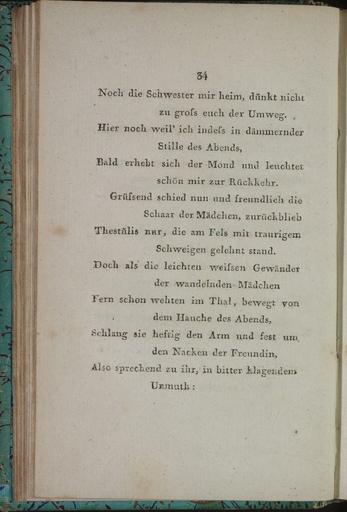 34
Noch die Schwester mir heim, dünkt nicht
zu groſs euch der Umweg.
Hier noch weil' ich indeſs in dämmernder
Stille des Abends,
Bald erhebt sich der Mond und leuchtet
schön mir zur Rückkehr.
Grüſsend schied nun und freundlich die
Schaar der Mädchen, zurückblieb
Thestülis nur, die am Fels mit traurigem
Schweigen gelehnt stand.
Doch als die leichten weiſsen Gewänder
der wandelnden Mädchen
Fern schon wehten im Thal, bewegt von
dem Hauche des Abends,
Schlang sie heftig den Arm und fest um
den Nacken der Freundin,
Also sprechend zu ihr, in bitter klagendem
Unmuth: